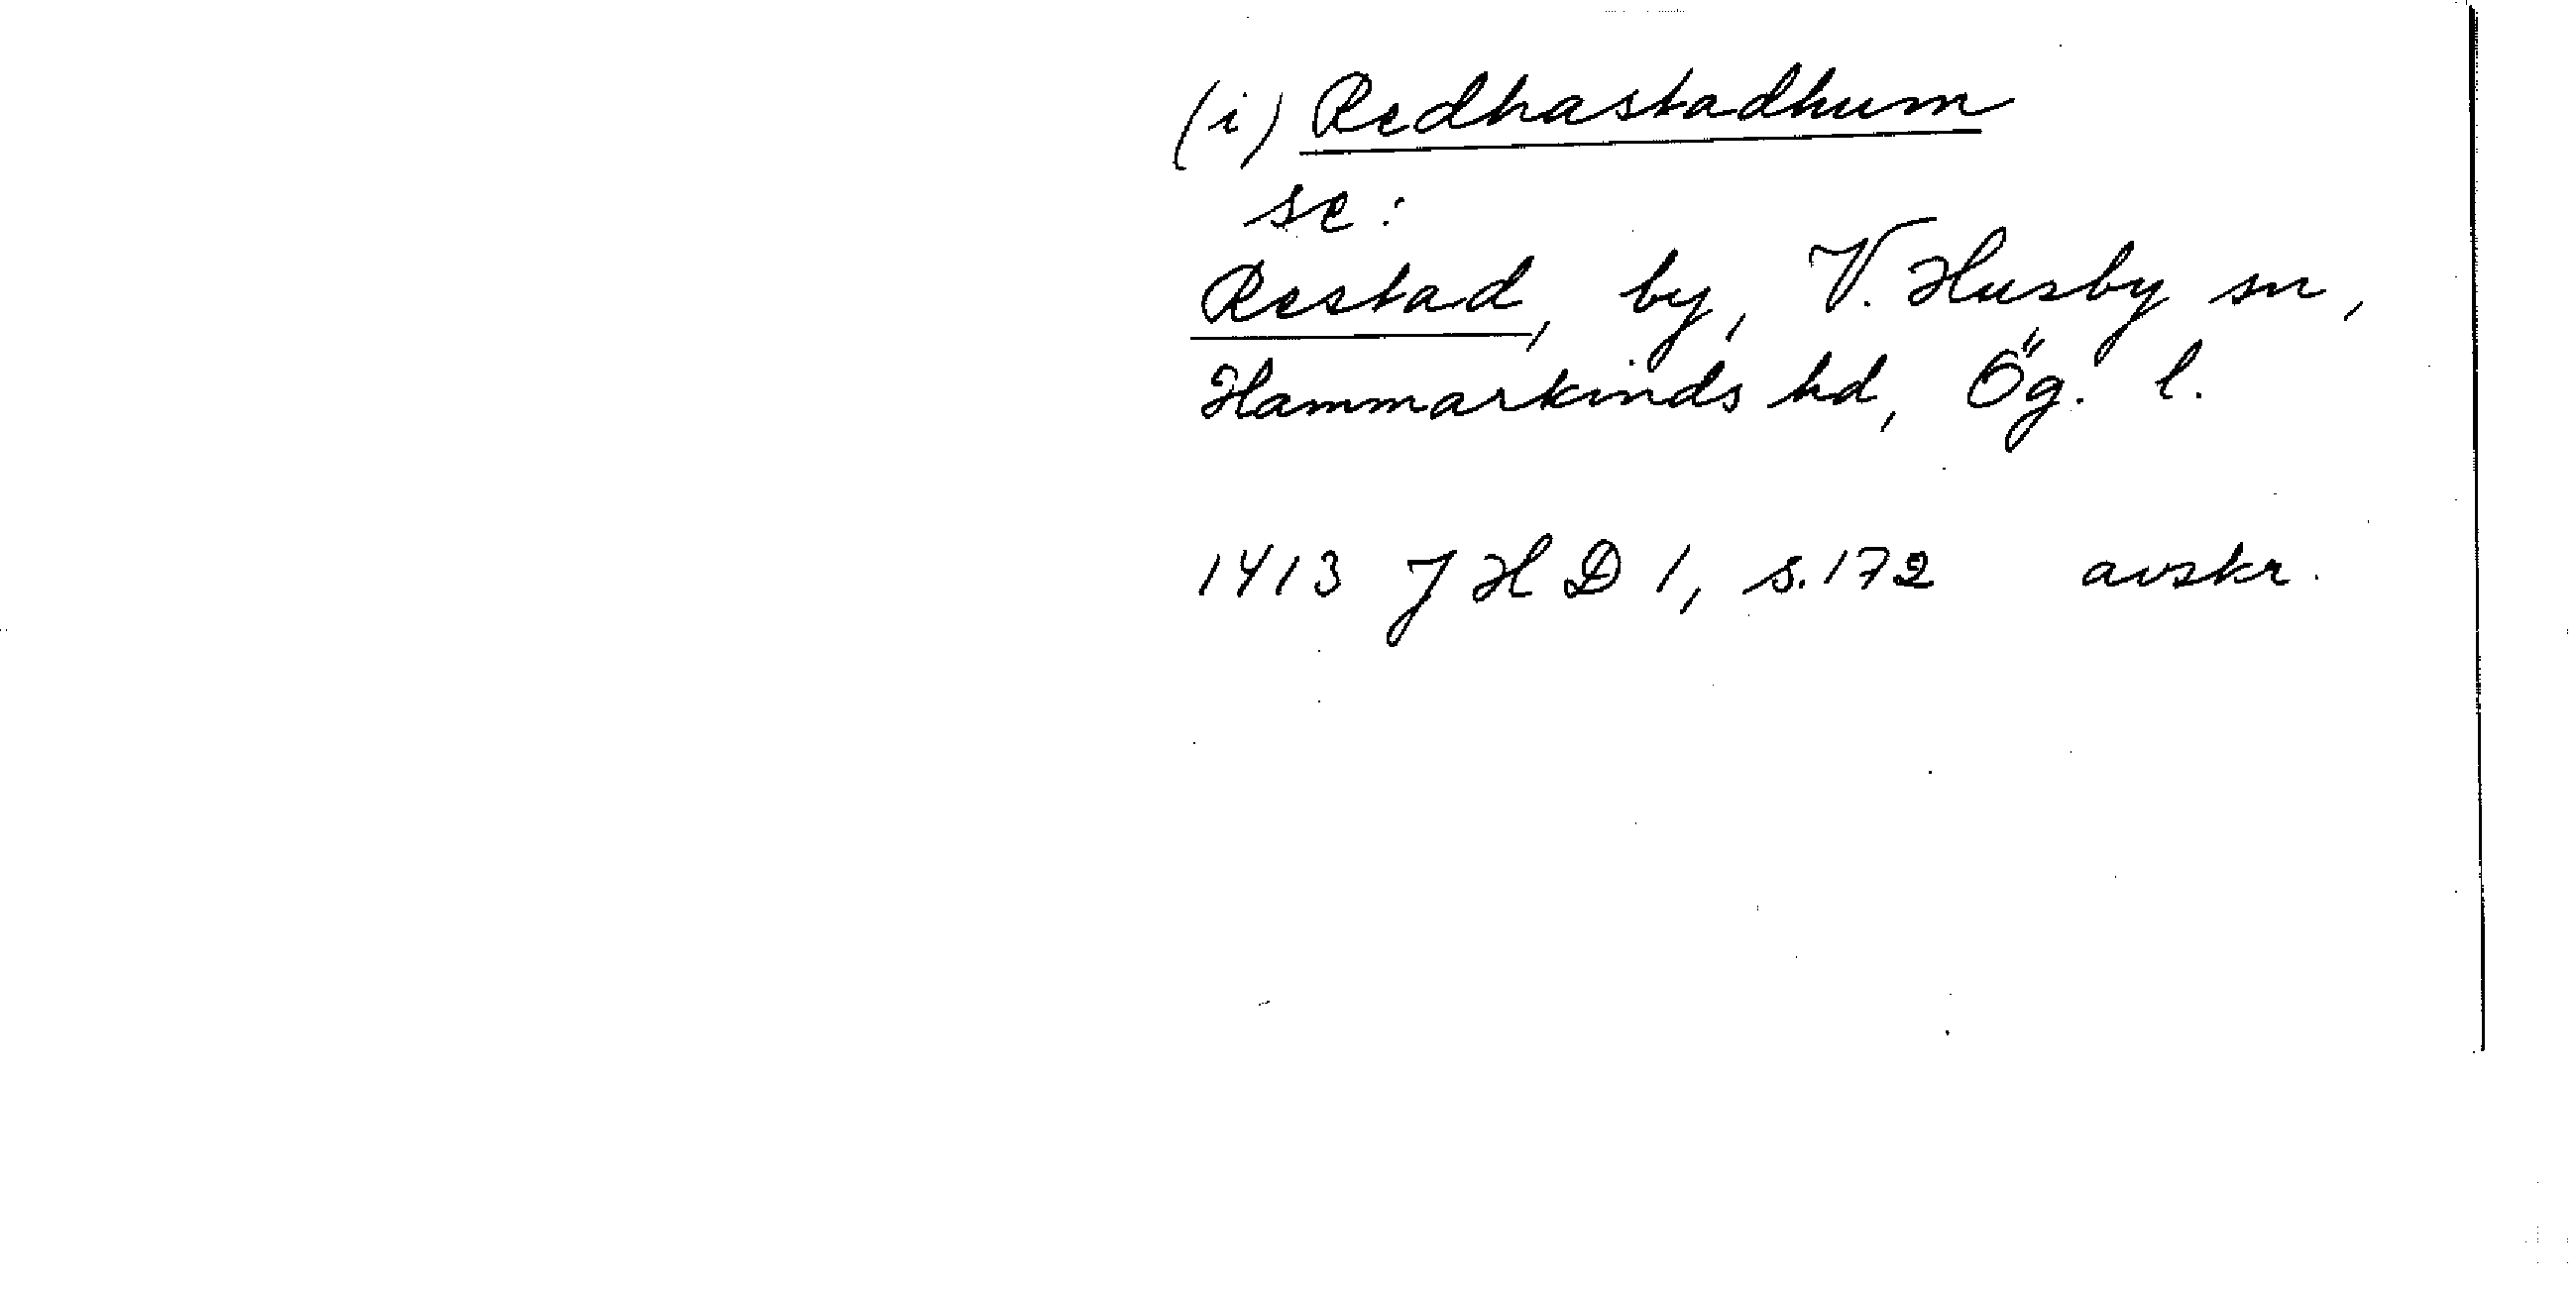 (i) Redhastadhum
se:
Restad, by, V. Husby sn,
Hammarkinds hd, Ög. l.
1413 J H D 1, s. 172 avskr.